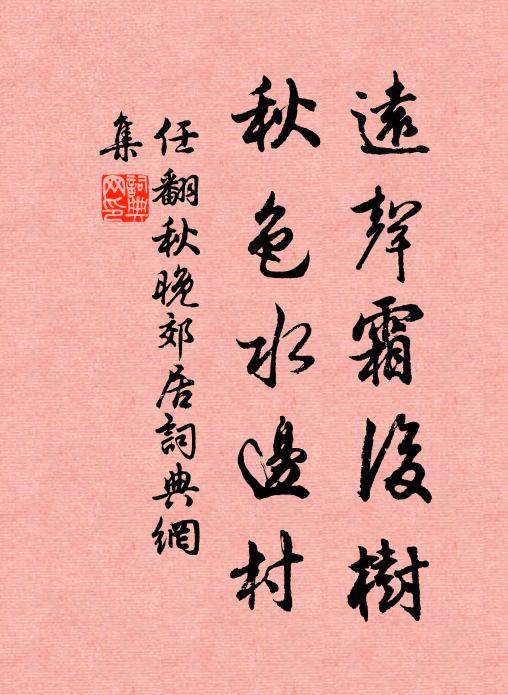 遠聲霜後樹
秋色水邊村
任翻秋晚郊居詞典網
集
詞典
网印